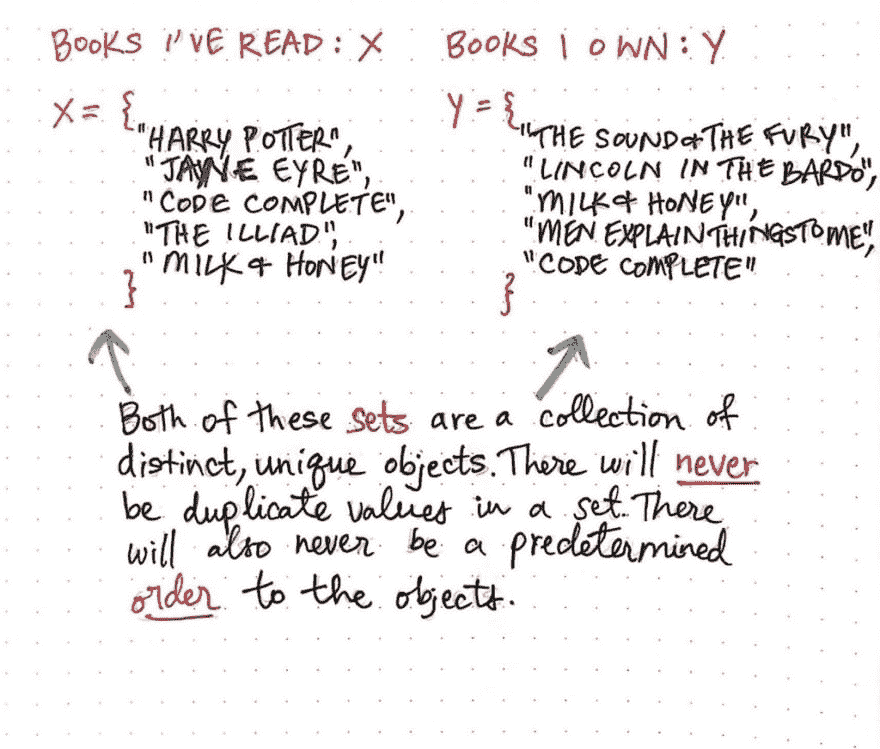 BOOKS I'VE READ: X
X = {
"HARRY POTTER",
"JAYNE EYRE",
"CODE COMPLETE",
"THE ILLIAD",
"MILK & HONEY"
}
BOOKS I OWN: Y
Y = {
"THE SOUND & THE FURY",
"LINCOLN IN THE BARDO",
"MILK & HONEY",
"MEN EXPLAIN THINGS TO ME",
"CODE COMPLETE"
}
Both of these sets are a collection of
distinct, unique objects. There will never
be duplicate values in a set. There
will also never be a predetermined
order to the objects.